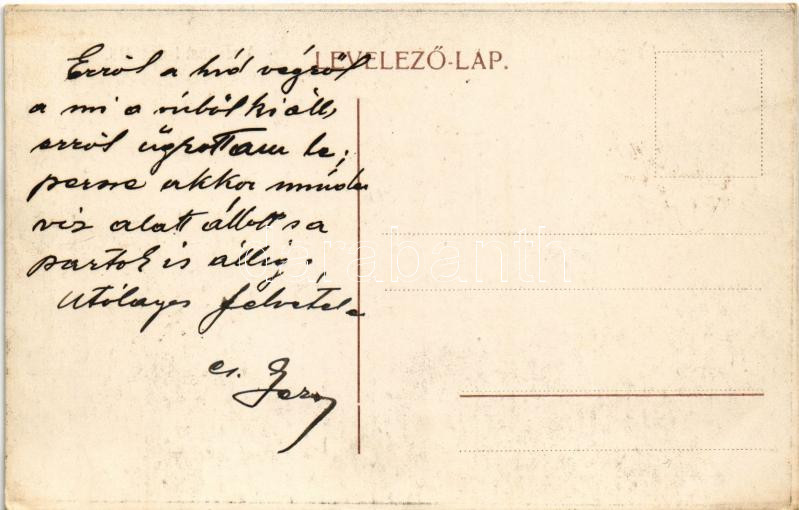 LEVELEZŐ-LAP.
Erről a híd végről
a mi a vízből kiáll,
erről ügrottam le;
perse akkor minden
víz alatt állott s a
partok is állig.
Utólagos felvétele
Darabanth